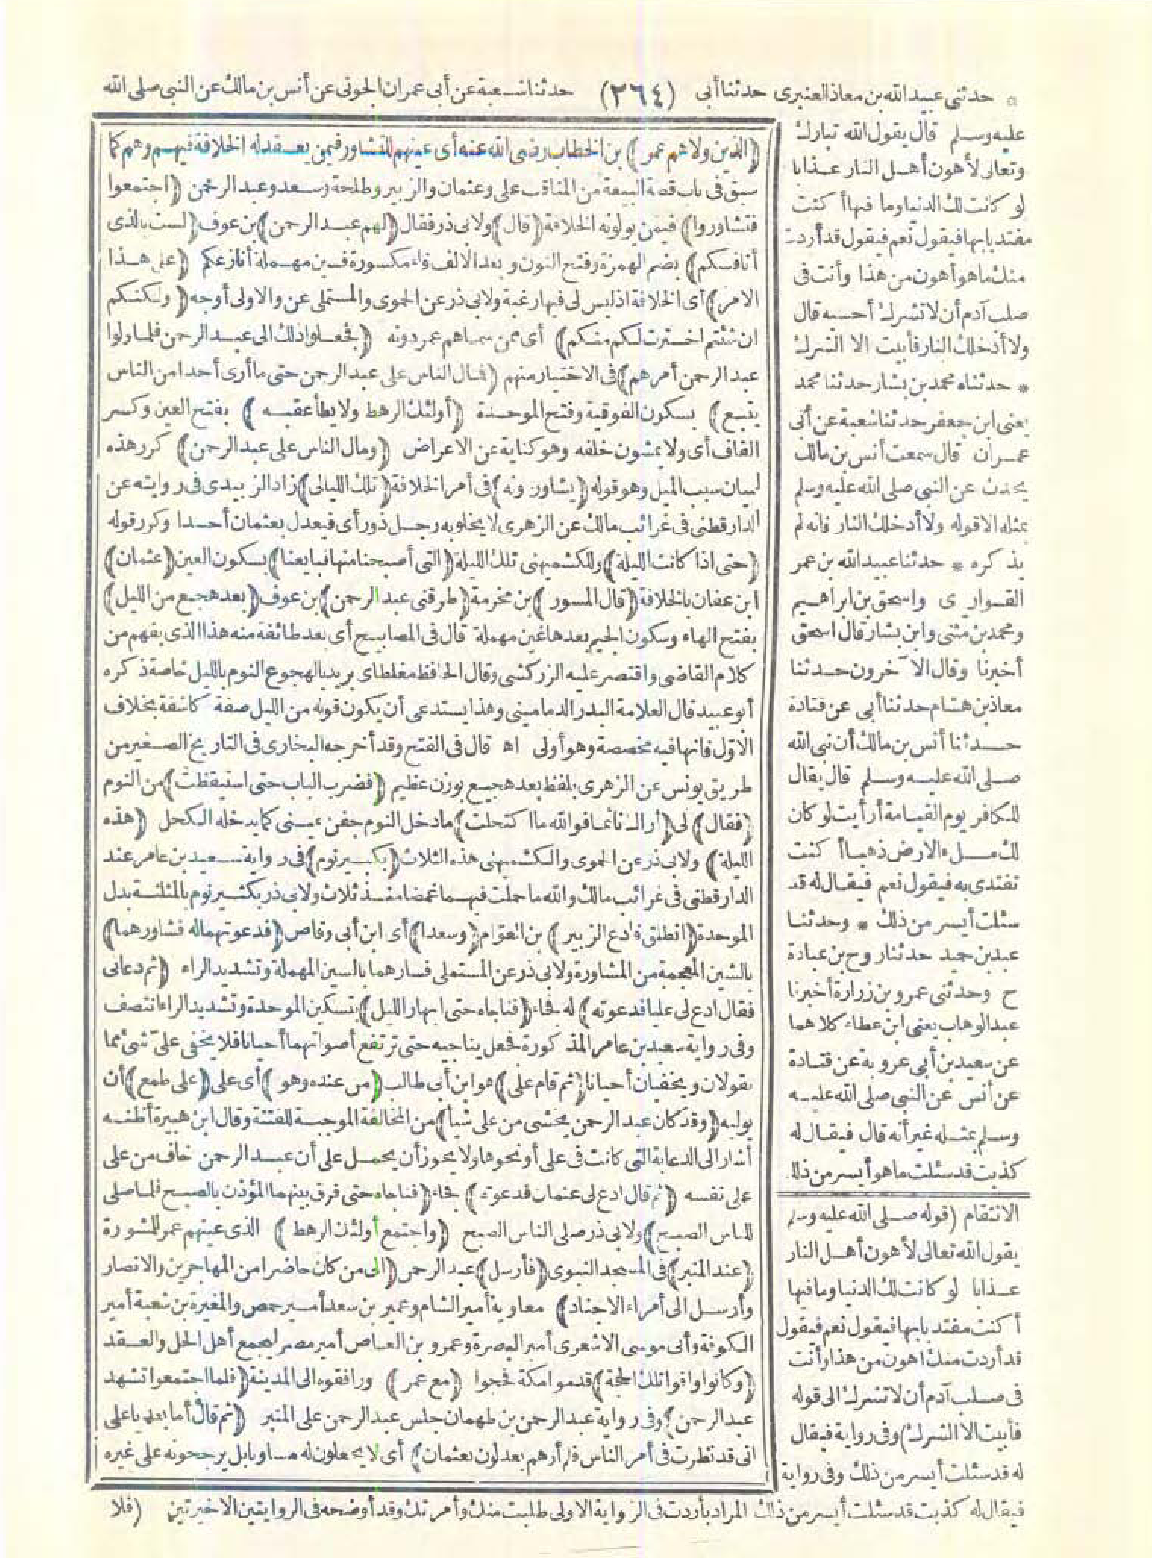 * حدثنى عبيد الله بن معاذ العنبرى حدثنا أبى (٢٦٤) حدثنا شعبة عن أبى عمران الجونى عن أنس بن مالك عن النبى صلى الله
عليه وسلم قال يقول الله تبارك
وتعالى لأهون أهل النار عذابا
لو كانت لك الدنيا وما فيها أكنت
مفتديا بها فيقول نعم فيقول قد أردت
منك ما هو أهون من هذا وأنت فى
صلب آدم أن لا تشرك أحسبه قال
ولا أدخلك النار فأبيت الا الشرك
* حدثناه محمد بن بشار حدثنا محمد
يعنى ابن جعفر حدثنا شعبة عن أبى
عمران قال سمعت أنس بن مالك
يحدث عن النبى صلى الله عليه وسلم
بمثله الا قوله ولا أدخلك النار فانه لم
يذكره * حدثنا عبيد الله بن عمر
القواريرى واسحق بن ابراهيم
ومحمد بن مثنى وابن بشار قال اسحق
أخبرنا وقال الآخرون حدثنا
معاذ بن هشام حدثنا أبى عن قتادة
حدثنا أنس بن مالك أن نبى الله
صلى الله عليه وسلم قال يقال
للكافر يوم القيامة أرأيت لو كان
لك ملء الارض ذهبا أكنت
تفتدى به فيقول نعم فيقال له قد
سئلت أيسر من ذلك * وحدثنا
عبد بن حميد حدثنا روح بن عبادة
ح وحدثنى عمرو بن زرارة أخبرنا
عبد الوهاب يعنى ابن عطاء كلاهما
عن سعيد بن أبى عروبة عن قتادة
عن أنس عن النبى صلى الله عليه
وسلم بمثله غير أنه قال فيقال له
كذبت قد سئلت ما هو أيسر من ذلك
الانتقام (قوله صلى الله عليه وسلم
يقول الله تعالى لأهون أهل النار
عذابا لو كانت لك الدنيا وما فيها
أكنت مفتديا بها فيقول نعم فيقول
قد أردت منك أهون من هذا وأنت
فى صلب آدم أن لا تشرك الى قوله
فأبيت الا الشرك) وفى رواية فيقال
له قد سئلت أيسر من ذلك وفى رواية
(الذين ولاهم عمر) بن الخطاب رضى الله عنه أى عينهم للتشاور فيمن يعقد له الخلافة فيهم وهم كما
سبق فى باب قصة البيعة من المناقب على وعثمان والزبير وطلحة وسعد وعبد الرحمن (اجتمعوا
فتشاوروا) فيمن يولونه الخلافة (قال) ولابى ذر فقال (لهم عبد الرحمن) بن عوف (لست بالذى
أنافسكم) بضم الهمزة وفتح النون وبعد الالف فاء مكسورة فسين مهملة أنازعكم (على هذا
الامر) أى الخلافة اذ ليس لى فيها رغبة ولابى ذر عن الحموى والمستملى عن والاولى أوجه (ولكنكم
ان شئتم اخترت لكم منكم) أى ممن سماهم عمر دونه (فجعلوا ذلك الى عبد الرحمن فلما ولوا
عبد الرحمن أمرهم) فى الاختيار منهم (فمال الناس على عبد الرحمن حتى ما أرى أحدا من الناس
يتبع) بسكون الفوقية وفتح الموحدة (أولئك الرهط ولا يطأ عقبه) بفتح العين وكسر
القاف أى ولا يمشون خلفه وهو كناية عن الاعراض (ومال الناس على عبد الرحمن) كرر هذه
لبيان سبب الميل وهو قوله (يشاورونه) فى أمر الخلافة (تلك الليالى) زاد الزبيدى فى روايته عن
الدارقطنى فى غرائب مالك عن الزهرى لا يخلو به رجل ذو رأى فيعدل بعثمان أحدا وكرر قوله
(حتى اذا كانت الليلة) وللكشميهنى تلك الليلة (التى أصبحنا منها فبايعنا) بسكون العين (عثمان)
ابن عفان بالخلافة (قال المسور) بن مخرمة (طرقنى عبد الرحمن) بن عوف (بعد هجع من الليل)
بفتح الهاء وسكون الجيم بعدها عين مهملة قال فى المصابيح أى بعد طائفة منه هذا الذى يفهم من
كلام القاضى واقتصر عليه الزركشى وقال الحافظ مغلطاى يريد بالهجوع النوم بالليل خاصة ذكره
أبو عبيد قال العلامة البدر الدمامينى وهذا يستدعى أن يكون قوله من الليل صفة كاشفة بخلاف
الاول فانها فيه مخصصة وهو أولى اه قال فى الفتح وقد أخرجه البخارى فى التاريخ الصغير من
طريق يونس عن الزهرى بلفظ بعد هجيع بوزن عظيم (فضرب الباب حتى استيقظت) من النوم
(فقال) لى (أراك نائما فوالله ما اكتحلت) ما دخل النوم جفن عينى كما يدخله الكحل (هذه
الليلة) ولابى ذر عن الحموى والكشميهنى هذه الثلاث (بكبير نوم) فى رواية سعيد بن عامر عند
الدارقطنى فى غرائب مالك والله ما حملت فيهما غمضا منذ ثلاث ولابى ذر بكثير نوم بالمثلثة بدل
الموحدة (انطلق فادع الزبير) بن العوام (وسعدا) أى ابن أبى وقاص (فدعوتهما له فشاورهما)
بالشين المعجمة من المشاورة ولابى ذر عن المستملى فسارهما بالسين المهملة وتشديد الراء (ثم دعانى
فقال ادع لى عليا فدعوته) له فجاء (فناجاه حتى ابهار الليل) بتسكين الموحدة وتشديد الراء انتصف
وفى رواية سعيد بن عامر المذكورة فجعل يناجيه حتى ترتفع أصواتهما أحيانا فلا يخفى على شئ مما
يقولان ويخفيان أحيانا (ثم قام على) هو ابن أبى طالب (من عنده وهو) أى على (على طمع) أن
يوليه (وقد كان عبد الرحمن يخشى من على شيأ) من المخالفة الموجبة للفتنة وقال ابن هبيرة أظنه
أشار الى الدعابة التى كانت فى على أو نحوها ولا يجوز أن يحمل على أن عبد الرحمن خاف من على
على نفسه (ثم قال ادع لى عثمان فدعوته) فجاء (فناجاه حتى فرق بينهما المؤذن بالصبح فلما صلى
للناس الصبح) ولابى ذر صلى الناس الصبح (واجتمع أولئك الرهط) الذى عينهم عمر للشورة
(عند المنبر) فى المسجد النبوى (فأرسل) عبد الرحمن (الى من كان حاضرا من المهاجرين والانصار
وأرسل الى أمراء الاجناد) معاوية أمير الشام وعمير بن سعد أمير حمص والمغيرة بن شعبة أمير
الكوفة وأبى موسى الاشعرى أمير البصرة وعمرو بن العاص أمير مصر ليجمع أهل الحل والعقد
(وكانوا وافوا تلك الحجة) قدموا مكة فحجوا (مع عمر) ورافقوه الى المدينة (فلما اجتمعوا تشهد
عبد الرحمن) وفى رواية عبد الرحمن بن طهمان جلس عبد الرحمن على المنبر (ثم قال أما بعد يا على
انى قد نظرت فى أمر الناس فلم أرهم يعدلون بعثمان) أى لا يجعلون له مساويا بل يرجحونه على غيره
فيقال له كذبت قد سئلت أيسر من ذلك المراد بأردت فى الرواية الاولى طلبت منك وأمرتك وقد أوضحه فى الروايتين الاخيرتين (فلا